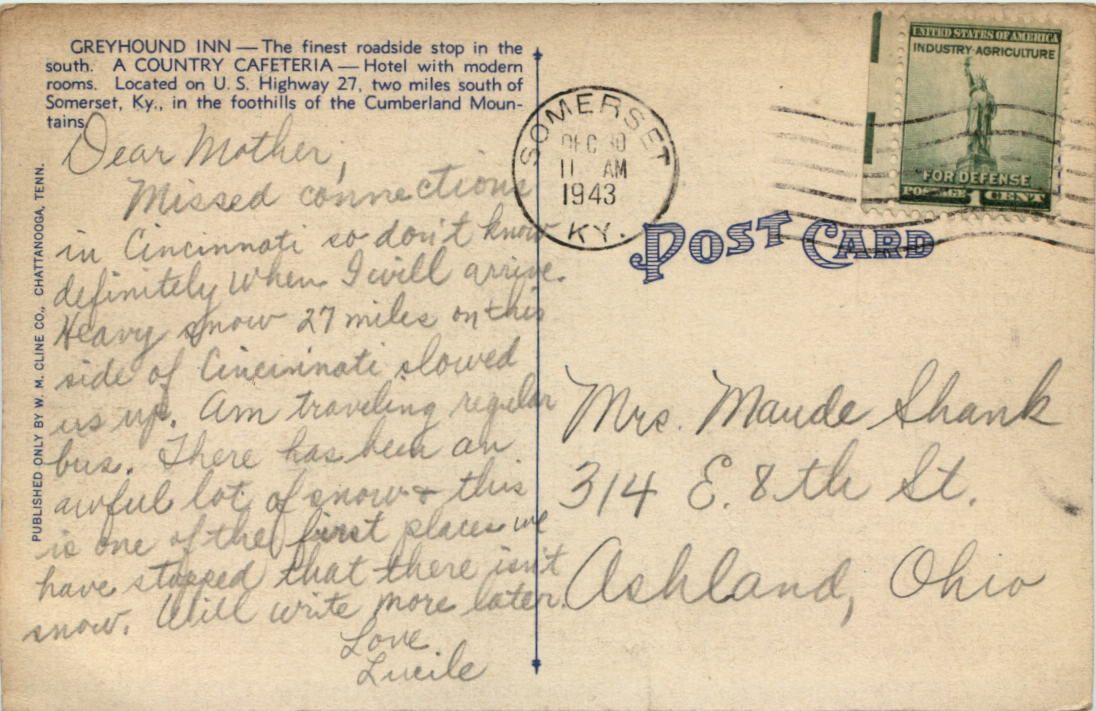 GREYHOUND INN — The finest roadside stop in the
south. A COUNTRY CAFETERIA — Hotel with modern
rooms. Located on U. S. Highway 27, two miles south of
Somerset, Ky., in the foothills of the Cumberland Moun-
tains.
Dear Mother,
Missed connections
in Cincinnati so don't know
definitely when I will arrive.
Heavy snow 27 miles on this
side of Cincinnati slowed
us up. Am traveling regular
bus. There has been an
awful lot of snow + this
is one of the first places we
have stopped that there isn't
snow. Will write more later.
Love
Lucile
PUBLISHED ONLY BY W. M. CLINE CO., CHATTANOOGA, TENN.
SOMERSET
DEC 30
11 AM
1943
KY.
UNITED STATES OF AMERICA
INDUSTRY·AGRICULTURE
FOR DEFENSE
POSTAGE 1 CENT
POST CARD
Mrs. Maude Shank
314 E. 8th St.
Ashland, Ohio